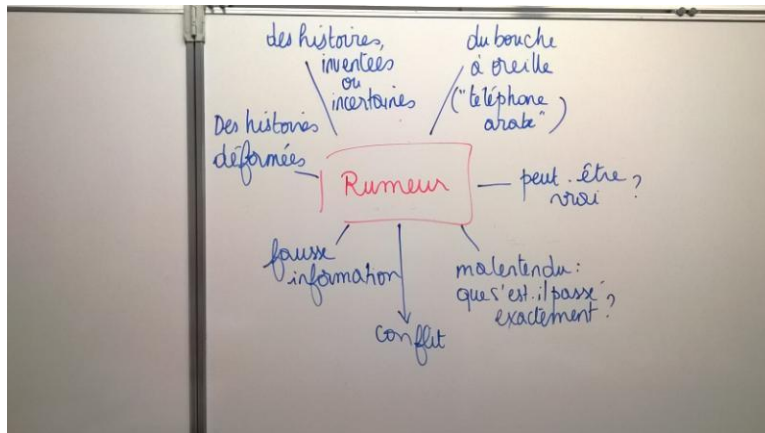 des histoires,
inventées
ou
incertaines
du bouche
à oreille
("téléphone
arabe")
Des histoires
déformées
Rumeur
peut-être
vrai ?
fausse
information
conflit
malentendu :
que s'est-il passé
exactement ?